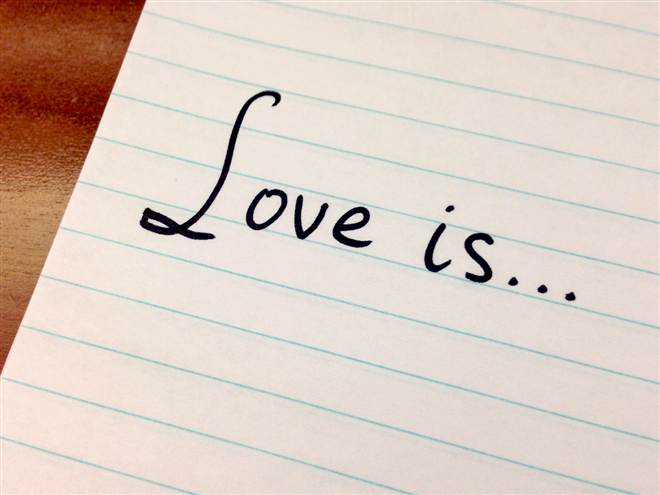 Love is...